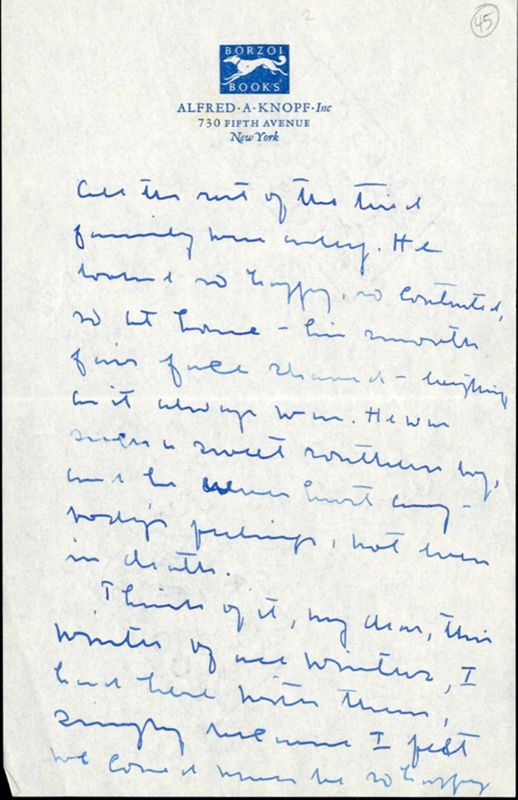 45
BORZOI
BOOKS
ALFRED·A·KNOPF·Inc
730 FIFTH AVENUE
New York
all the rest of the tired
family were asleep. He
looked so happy, so contented,
so at home – his smooth
fair face shaved – everything
as it always was. He was
such a sweet southern boy,
and he never hurt any-
body's feelings, not even
in death.
Think of it, my dear, this
winter of all winters, I
had here with them,
simply because I felt
we could never be so happy